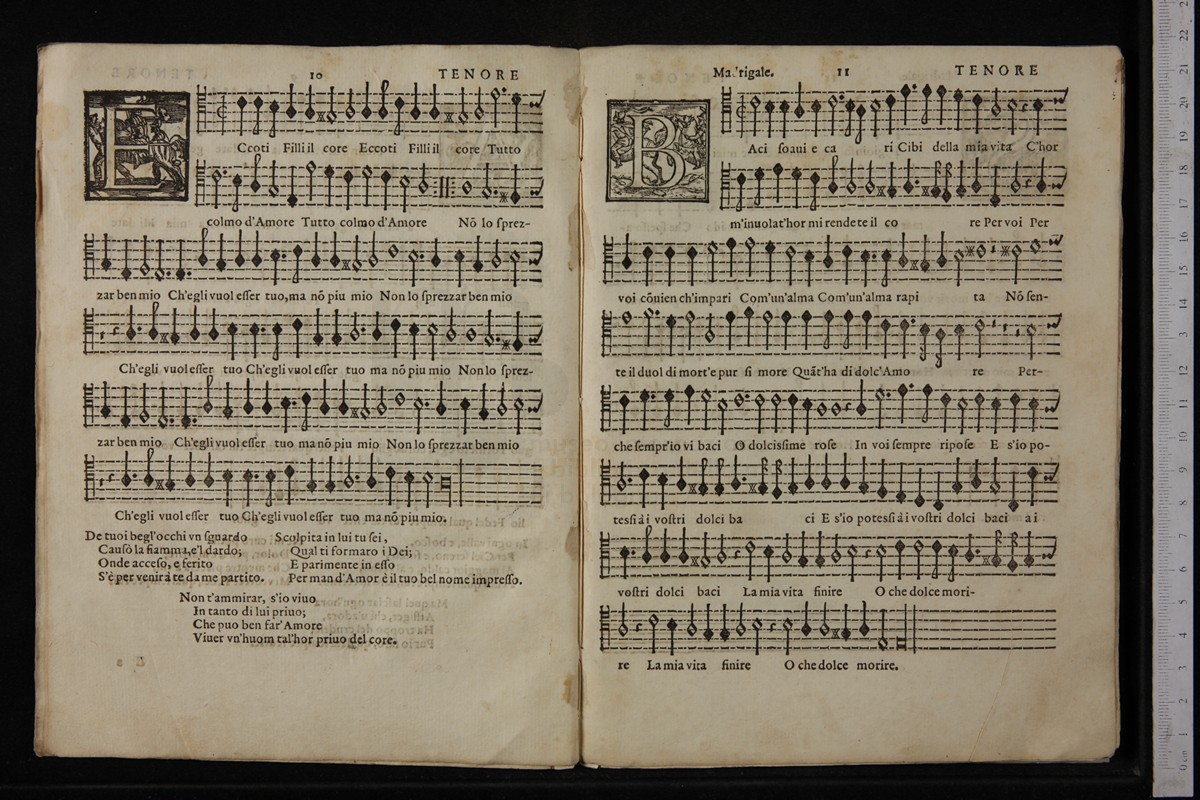 10 TENORE
ECcoti Filli il core Eccoti Filli il core Tutto
colmo d'Amore Tutto colmo d'Amore Nõ lo sprez-
zar ben mio Ch'egli vuol esser tuo,ma nõ piu mio Non lo sprezzar ben mio
Ch'egli vuol esser tuo Ch'egli vuol esser tuo ma nõ piu mio Non lo sprez-
zar ben mio Ch'egli vuol esser tuo ma nõ piu mio Non lo sprezzar ben mio
Ch'egli vuol esser tuo Ch'egli vuol esser tuo ma nõ piu mio.
De tuoi begl'occhi vn sguardo
Causò la fiamma,e'l dardo;
Onde acceso, e ferito
S'è per venir à te da me partito.
Scolpita in lui tu sei,
Qual ti formaro i Dei;
E parimente in esso
Per man d'Amor è il tuo bel nome impresso.
Non t'ammirar, s'io viuo
In tanto di lui priuo;
Che puo ben far'Amore
Viuer vn'huom tal'hor priuo del core.
Madrigale. 11 TENORE
BAci soaui e ca ri Cibi della mia vita C'hor
m'inuolat'hor mi rendete il co re Per voi Per
voi cõuien ch'impari Com'un'alma Com'un'alma rapi ta Nõ sen-
te il duol di mort'e pur si more Quãt'ha di dolc'Amo re Per-
che sempr'io vi baci O dolcissime rose In voi sempre ripose E s'io po-
tessi ài vostri dolci ba ci E s'io potessi ài vostri dolci baci a i
vostri dolci baci La mia vita finire O che dolce mori-
re La mia vita finire O che dolce morire.